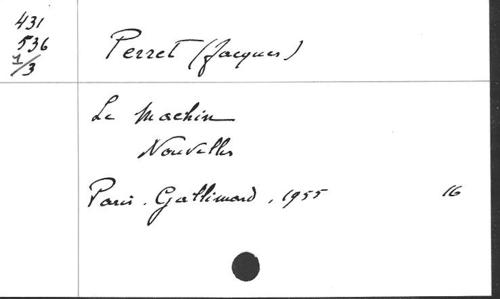 431
536
1/3
Perret (Jacques)
Le Machin
Nouvelles
Paris. Gallimard, 1955 16